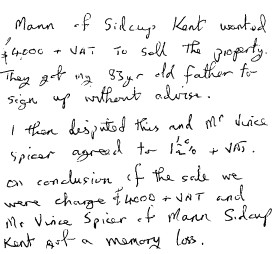 Mann of Sidcup Kent wanted
£4,000 + VAT to sell the property.
They got my 83yr old father to
sign up without advise.
I then disputed this and Mr Vince
Spicer agreed to 1½% + VAT.
On conclusion of the sale we
were charge £4000 + VAT and
Mr Vince Spicer of Mann Sidcup
Kent got a memory loss.